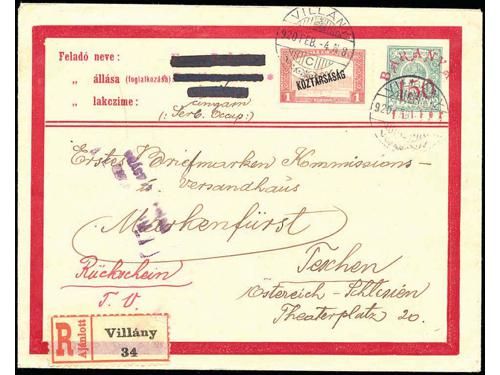 Feladó neve :
„ állása (foglalkozása)
„ lakczíme :
(: Serb. Occup:)
VILLÁNY
920 FEB. -4. N 8
C
KÖZTÁRSASÁG
1
BARANYA
150
VILLÁNY
Erstes Briefmarken Kommissions-
versandhaus
Markenfürst
Teschen
Österreich - Schlesien
Theaterplatz 20.
Rückschein
T. V.
R
Ajánlott
Villány
34